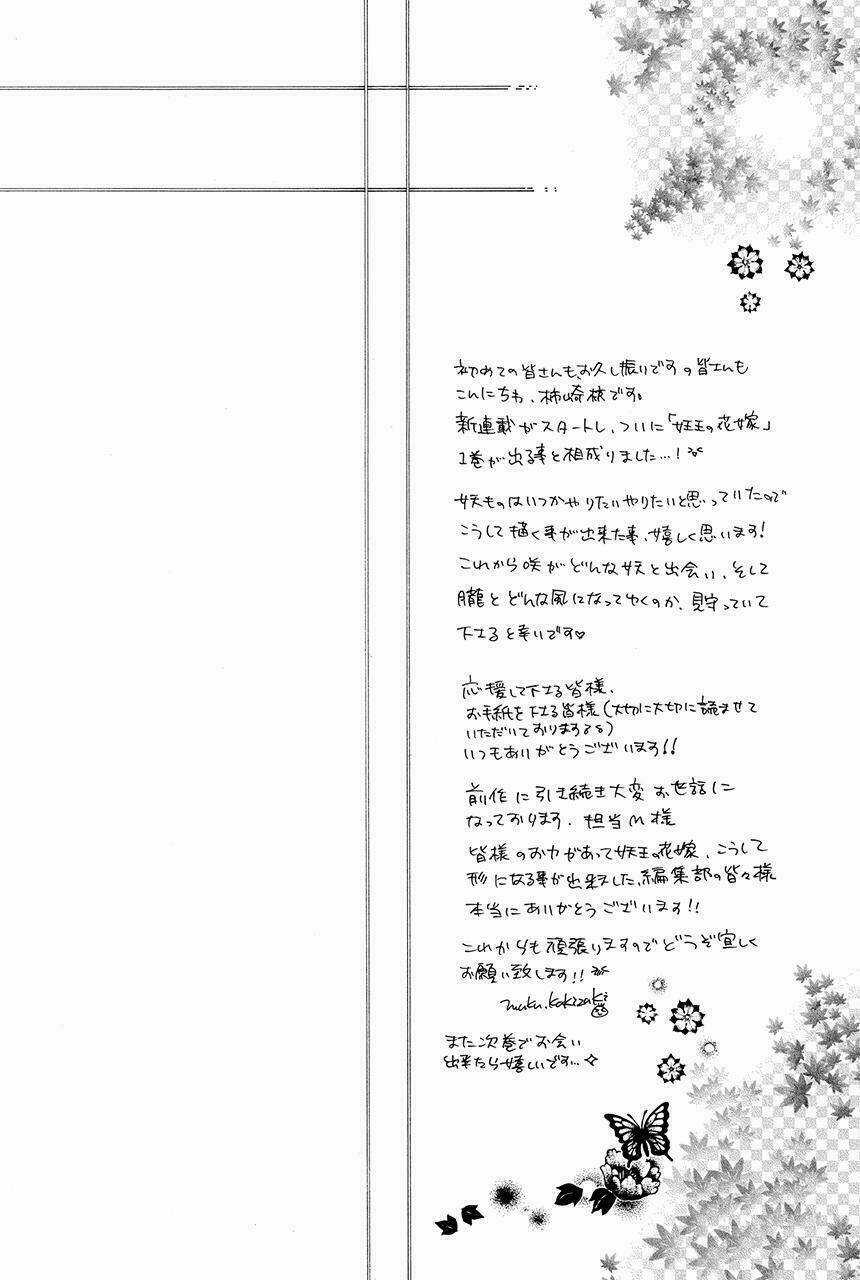 初めての皆さんも、お久し振りですの皆さんも
こんにちわ、柿崎椋です。
新連載がスタートし、ついに「妖王の花嫁」
1巻が出る事と相成りました…!
妖ものはいつかやりたいやりたいと思っていたので
こうして描く事が出来た事、嬉しく思います!
これから咲がどんな妖と出会い、そして
朧とどんな風になってゆくのか、見守っていて
下さると幸いです♡
応援して下さる皆様、
お手紙を下さる皆様(大切に大切に読ませて
いただいております)
いつもありがとうございます!!
前作に引き続き大変お世話に
なっております、担当M様
皆様のお力があって妖王の花嫁、こうして
形になる事が出来ました、編集部の皆々様
本当にありがとうございます!!
これからも頑張りますのでどうぞ宜しく
お願い致します!!
muku.kakizaki
また次巻でお会い
出来たら嬉しいです…✧